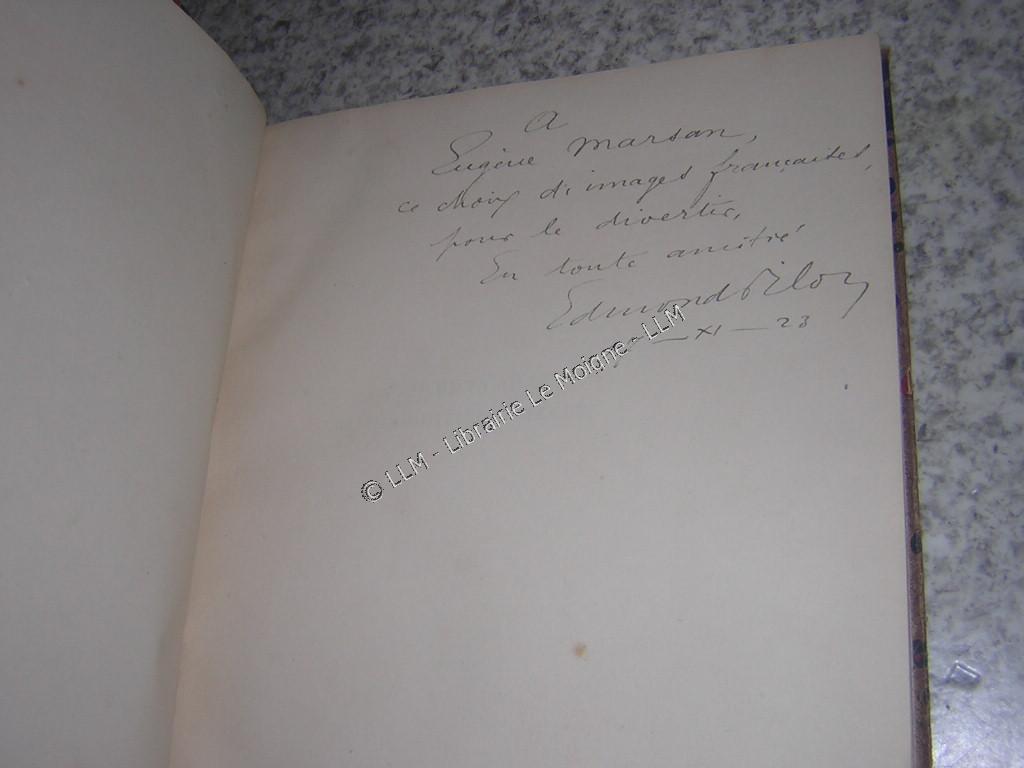 A
Eugène Marsan,
ce choix d'images françaises,
pour le divertir,
En toute amitié
Edmond Pilon
XI — 23
© LLM - Librairie Le Moigne - LLM